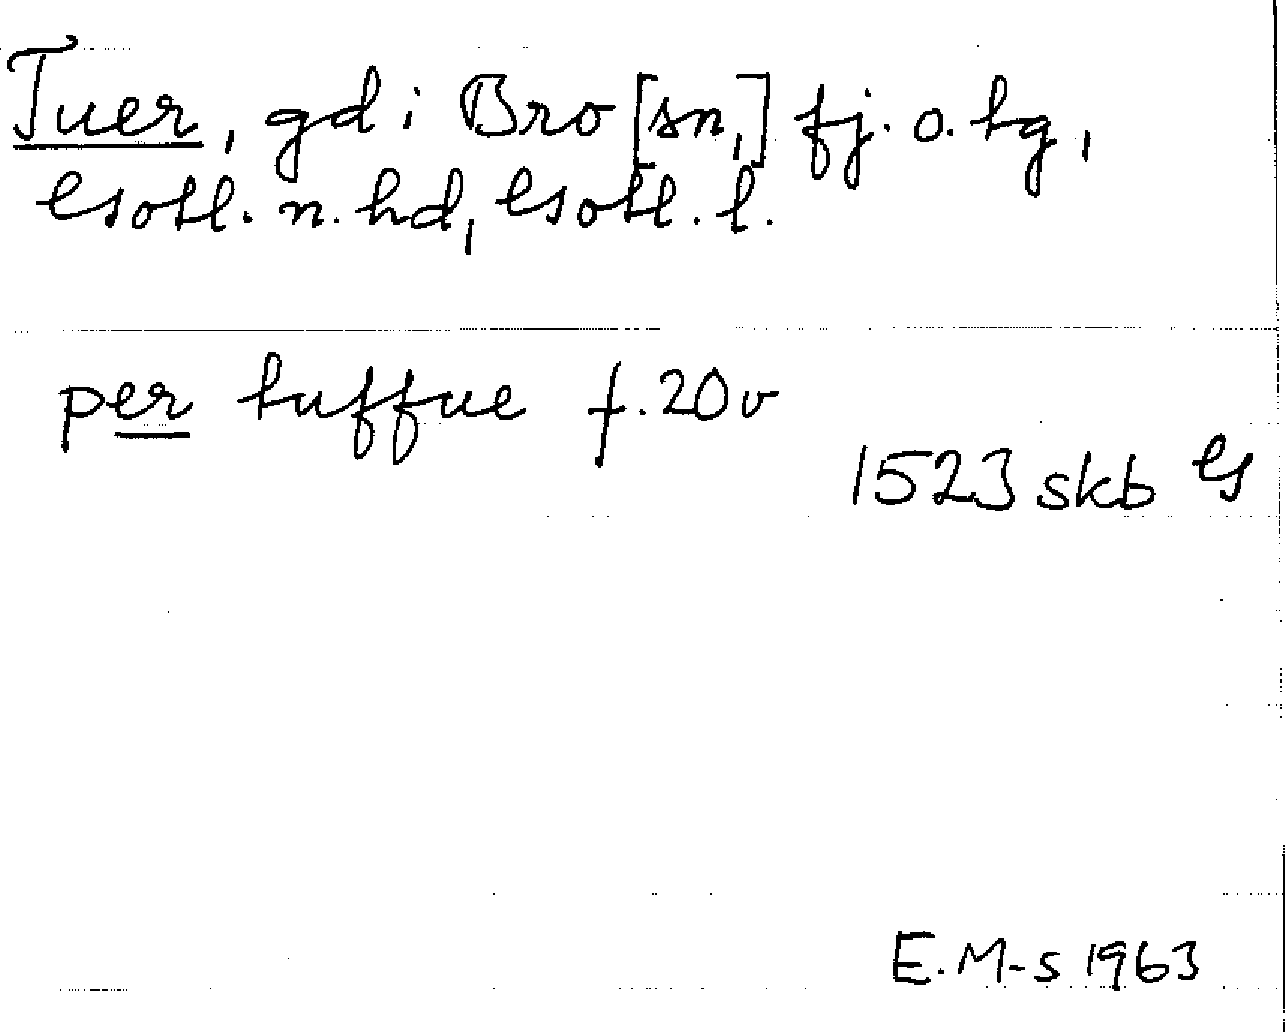 Tuer, gd i Bro [sn,] fj. o. tg,
Gotl. n. hd, Gotl. l.
per tuffue f. 20v
1523 skb G
E. M-s 1963